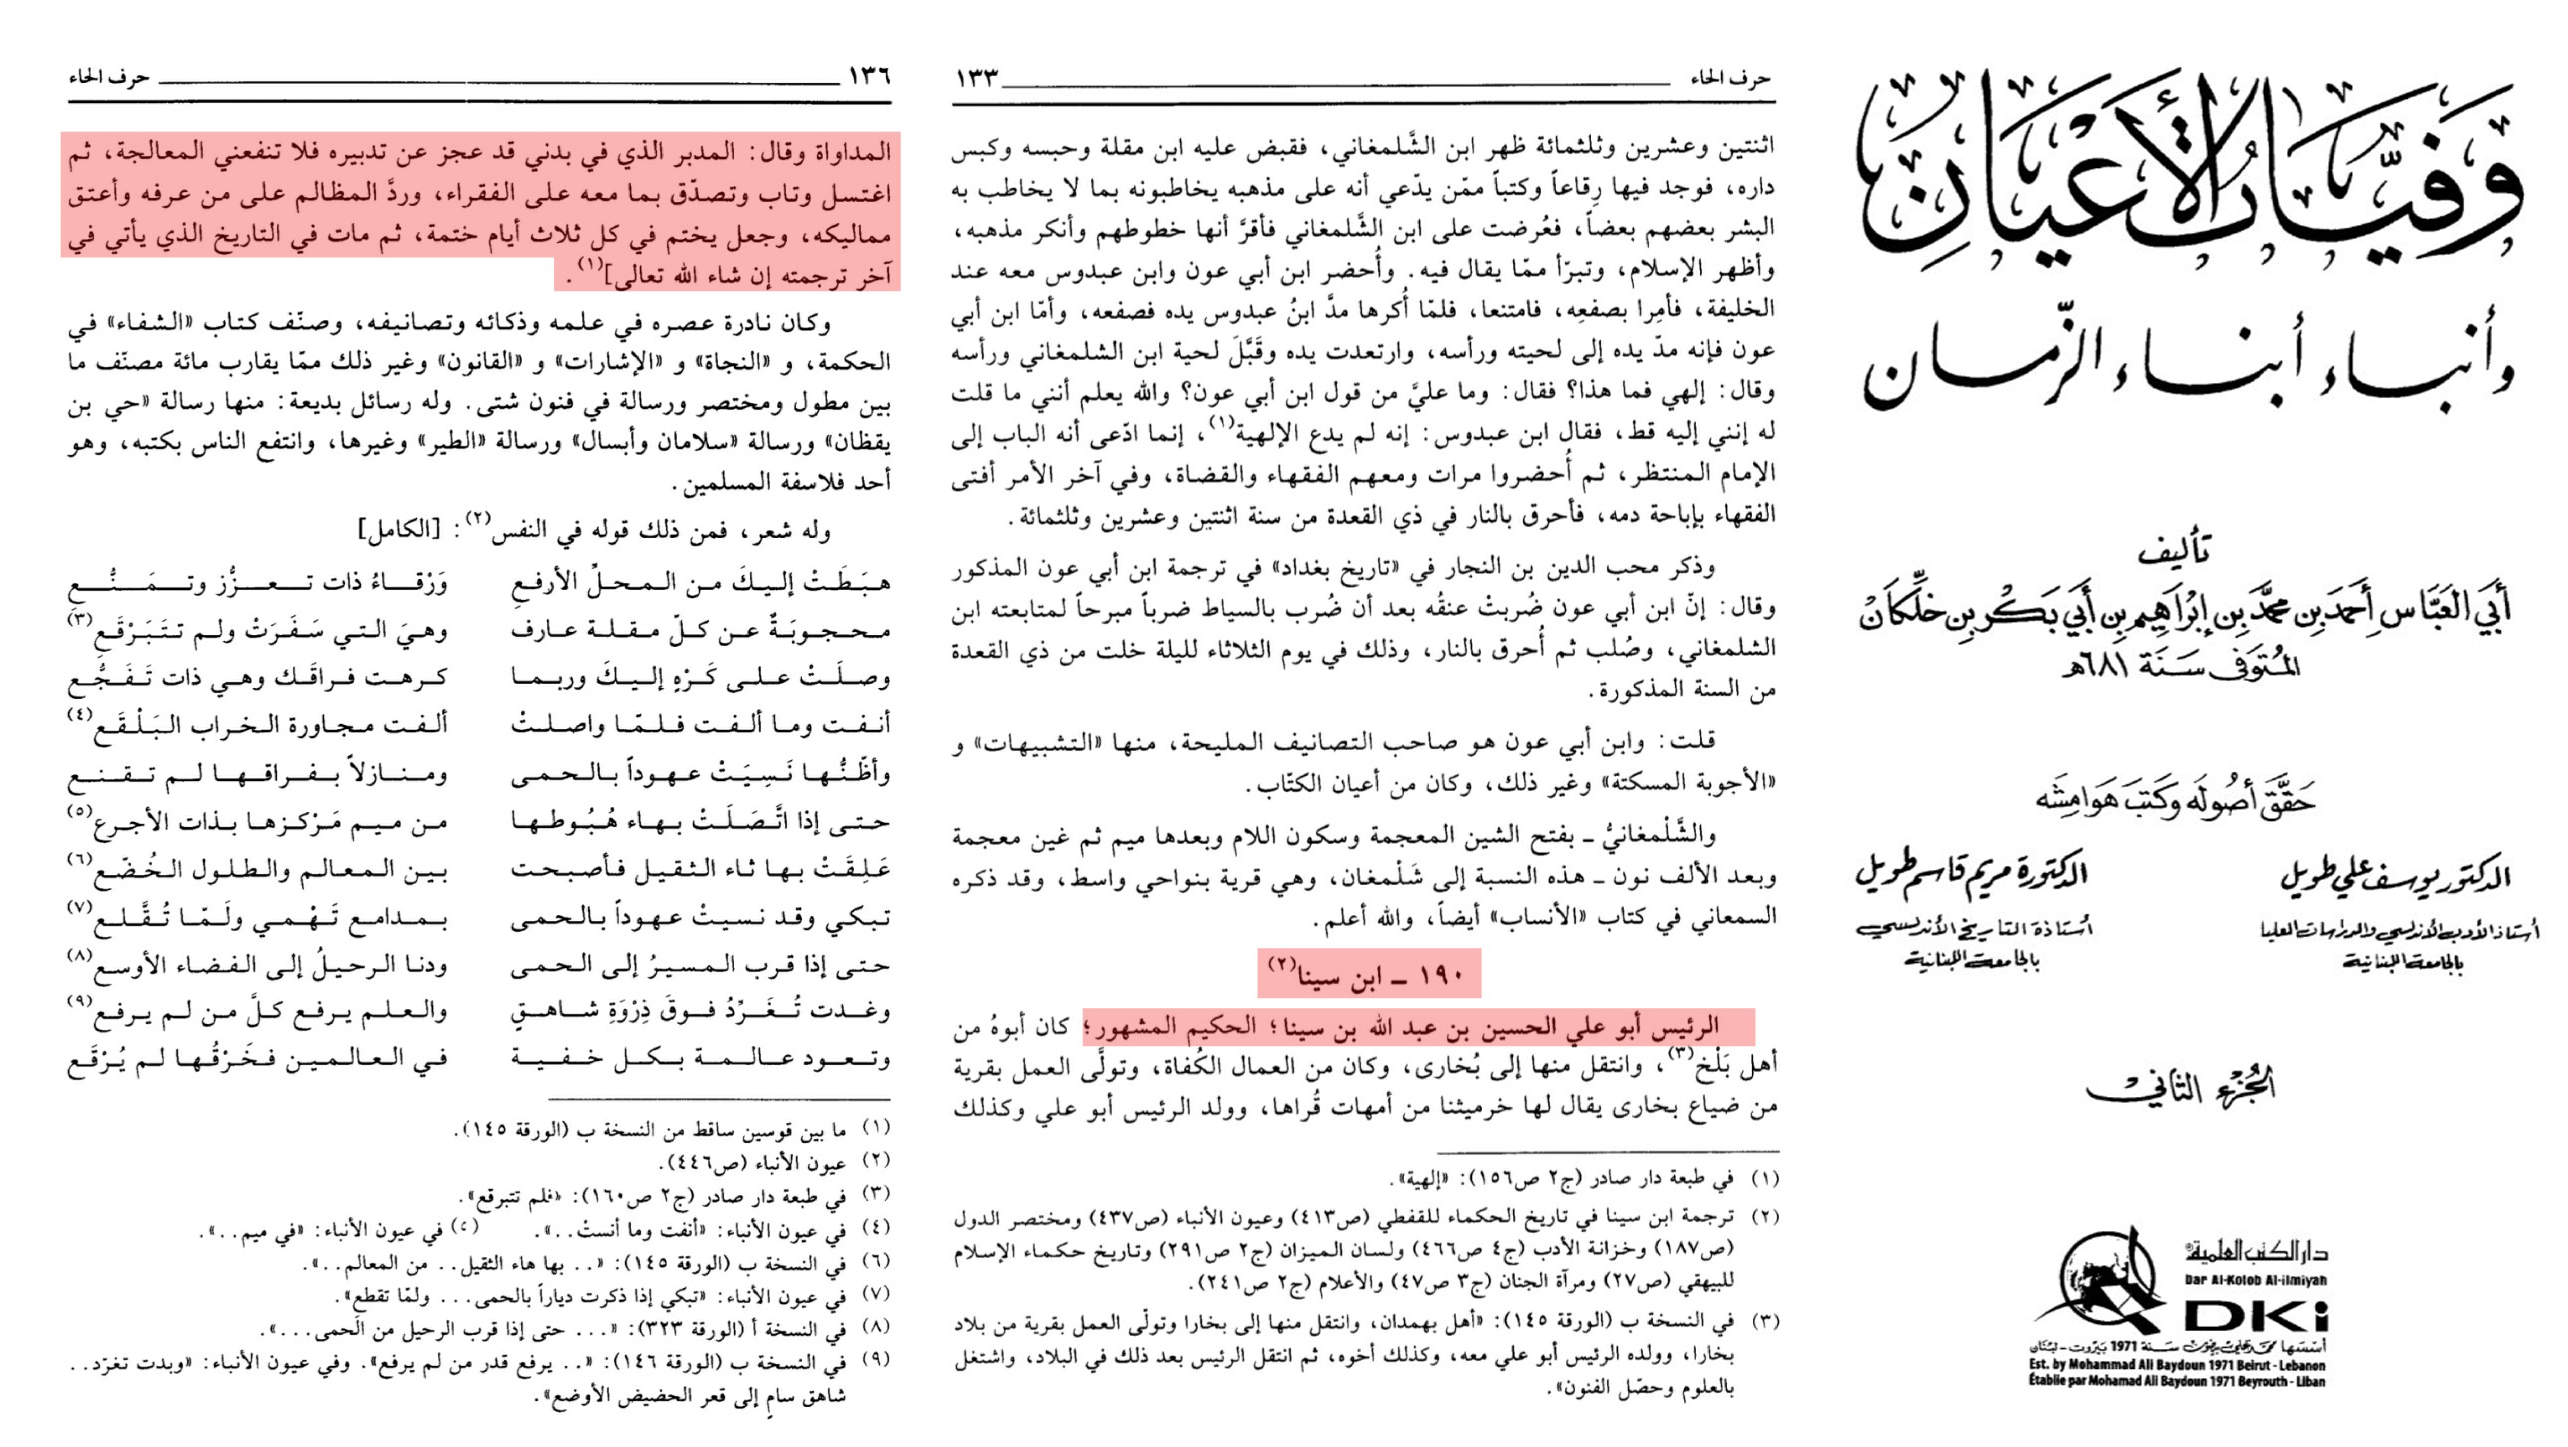 وَفَيَاتُ الأَعْيَانِ
وأنباء أبناء الزّمان
تأليف
أَبِي العَبَّاس أَحْمَد بن محمَّد بن إبْرَاهِيم بن أَبي بَكْر بن خلِّكَانْ
المُتوَفى سَنَة ٦٨١هـ
حَقَّقَ أصُولَه وَكَتَبَ هَوَامِشَه
الدكتور يوسف علي طويل
الدكتورة مريم قاسم طويل
أستاذ الأدب الأندلسي والدراسات العليا
بالجامعة اللبنانية
أستاذة التاريخ الأندلسي
بالجامعة اللبنانية
الجُزءُ الثاني
دار الكتب العلمية
Dar Al-Kotob Al-ilmiyah
DKi
أسسها محمد علي بيضون سنة 1971 بيروت - لبنان
Est. by Mohammad Ali Baydoun 1971 Beirut - Lebanon
Établie par Mohamad Ali Baydoun 1971 Beyrouth - Liban
حرف الحاء ١٣٣
اثنتين وعشرين وثلثمائة ظهر ابن الشَّلمغاني، فقبض عليه ابن مقلة وحبسه وكبس
داره، فوجد فيها رِقاعاً وكتباً ممّن يدّعي أنه على مذهبه يخاطبونه بما لا يخاطب به
البشر بعضهم بعضاً، فعُرضت على ابن الشَّلمغاني فأقرَّ أنها خطوطهم وأنكر مذهبه،
وأظهر الإسلام، وتبرّأ ممّا يقال فيه. وأُحضر ابن أبي عون وابن عبدوس معه عند
الخليفة، فأمِرا بصفعِه، فامتنعا، فلمّا أُكرها مدَّ ابنُ عبدوس يده فصفعه، وأمّا ابن أبي
عون فإنه مدّ يده إلى لحيته ورأسه، وارتعدت يده وقَبَّلَ لحية ابن الشلمغاني ورأسه
وقال: إلهي فما هذا؟ فقال: وما عليَّ من قول ابن أبي عون؟ والله يعلم أنني ما قلت
له إنني إليه قط، فقال ابن عبدوس: إنه لم يدع الإلهية(١)، إنما ادّعى أنه الباب إلى
الإمام المنتظر، ثم أُحضروا مرات ومعهم الفقهاء والقضاة، وفي آخر الأمر أفتى
الفقهاء بإباحة دمه، فأحرق بالنار في ذي القعدة من سنة اثنتين وعشرين وثلثمائة.
وذكر محب الدين بن النجار في «تاريخ بغداد» في ترجمة ابن أبي عون المذكور
وقال: إنّ ابن أبي عون ضُربتْ عنقُه بعد أن ضُرب بالسياط ضرباً مبرحاً لمتابعته ابن
الشلمغاني، وصُلب ثم أُحرق بالنار، وذلك في يوم الثلاثاء لليلة خلت من ذي القعدة
من السنة المذكورة.
قلت: وابن أبي عون هو صاحب التصانيف المليحة، منها «التشبيهات» و
«الأجوبة المسكتة» وغير ذلك، وكان من أعيان الكتّاب.
والشَّلْمغانيُّ ـ بفتح الشين المعجمة وسكون اللام وبعدها ميم ثم غين معجمة
وبعد الألف نون ـ هذه النسبة إلى شَلْمغان، وهي قرية بنواحي واسط، وقد ذكره
السمعاني في كتاب «الأنساب» أيضاً، والله أعلم.
١٩٠ ـ ابن سينا(٢)
الرئيس أبو علي الحسين بن عبد الله بن سينا؛ الحكيم المشهور؛ كان أبوهُ من
أهل بَلْخ(٣)، وانتقل منها إلى بُخارى، وكان من العمال الكُفاة، وتولَّى العمل بقرية
من ضياع بخارى يقال لها خرميثنا من أمهات قُراها، وولد الرئيس أبو علي وكذلك
(١) في طبعة دار صادر (ج٢ ص١٥٦): «إلهية».
(٢) ترجمة ابن سينا في تاريخ الحكماء للقفطي (ص٤١٣) وعيون الأنباء (ص٤٣٧) ومختصر الدول
(ص١٨٧) وخزانة الأدب (ج٤ ص٤٦٦) ولسان الميزان (ج٢ ص٢٩١) وتاريخ حكماء الإسلام
للبيهقي (ص٢٧) ومرآة الجنان (ج٣ ص٤٧) والأعلام (ج٢ ص٢٤١).
(٣) في النسخة ب (الورقة ١٤٥): «أهل بهمدان، وانتقل منها إلى بخارا وتولّى العمل بقرية من بلاد
بخارا، وولده الرئيس أبو علي معه، وكذلك أخوه، ثم انتقل الرئيس بعد ذلك في البلاد، واشتغل
بالعلوم وحصّل الفنون».
١٣٦ حرف الحاء
المداواة وقال: المدبر الذي في بدني قد عجز عن تدبيره فلا تنفعني المعالجة، ثم
اغتسل وتاب وتصدّق بما معه على الفقراء، وردَّ المظالم على من عرفه وأعتق
مماليكه، وجعل يختم في كل ثلاث أيام ختمة، ثم مات في التاريخ الذي يأتي في
آخر ترجمته إن شاء الله تعالى](١).
وكان نادرة عصره في علمه وذكائه وتصانيفه، وصنّف كتاب «الشفاء» في
الحكمة، و «النجاة» و «الإشارات» و «القانون» وغير ذلك ممّا يقارب مائة مصنّف ما
بين مطول ومختصر ورسالة في فنون شتى. وله رسائل بديعة: منها رسالة «حي بن
يقظان» ورسالة «سلامان وأبسال» ورسالة «الطير» وغيرها، وانتفع الناس بكتبه، وهو
أحد فلاسفة المسلمين.
وله شعر، فمن ذلك قوله في النفس(٢): [الكامل]
هبَطَتْ إليكَ من المحلِّ الأرفعِ وَرْقاءُ ذات تعزُّز وتمَنُّعِ
محجوبَةٌ عن كلّ مقلة عارف وهيَ التي سَفَرَتْ ولم تتَبَرْقَعِ(٣)
وصلَتْ على كَرْهٍ إليكَ وربما كرهت فراقَك وهي ذات تَفَجُّعِ
أنفت وما ألفت فلمّا واصلتْ ألفت مجاورة الخراب البَلْقَعِ(٤)
وأظنُّها نَسِيَتْ عهوداً بالحمى ومنازلاً بفراقها لم تقنع
حتى إذا اتَّصَلَتْ بهاء هُبُوطها من ميم مَرْكزها بذات الأجرع(٥)
عَلِقَتْ بها ثاء الثقيل فأصبحت بين المعالم والطلول الخُضّع(٦)
تبكي وقد نسيتْ عهوداً بالحمى بمدامع تَهْمي ولَمّا تُقَّلع(٧)
حتى إذا قرب المسيرُ إلى الحمى ودنا الرحيلُ إلى الفضاء الأوسع(٨)
وغدت تُغَرِّدُ فوقَ ذِرْوَةِ شاهقٍ والعلم يرفع كلَّ من لم يرفع(٩)
وتعود عالمة بكل خفية في العالمين فخَرْقُها لم يُرْقَع
(١) ما بين قوسين ساقط من النسخة ب (الورقة ١٤٥).
(٢) عيون الأنباء (ص٤٤٦).
(٣) في طبعة دار صادر (ج٢ ص١٦٠): «فلم تتبرقع».
(٤) في عيون الأنباء: «أنفت وما أنستْ..». (٥) في عيون الأنباء: «في ميم..».
(٦) في النسخة ب (الورقة ١٤٥): «.. بها هاء الثقيل.. من المعالم..».
(٧) في عيون الأنباء: «تبكي إذا ذكرت دياراً بالحمى... ولمّا تقطع».
(٨) في النسخة أ (الورقة ٣٢٣): «... حتى إذا قرب الرحيل من الحمى...».
(٩) في النسخة ب (الورقة ١٤٦): «.. يرفع قدر من لم يرفع». وفي عيون الأنباء: «وبدت تغرّد..
شاهق سامٍ إلى قعر الحضيض الأوضع».